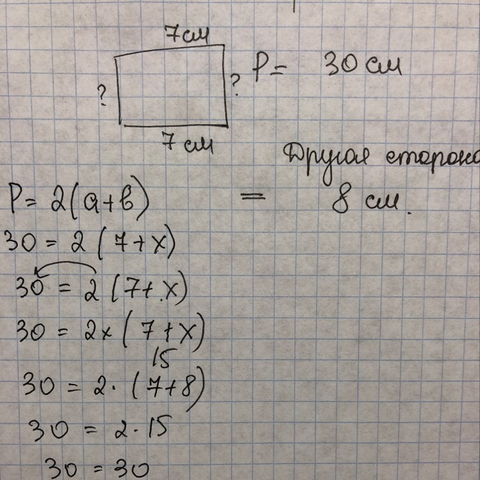 7см
? ? P = 30 см
7 см
Другая сторона
P = 2(a+b) = 8 см.
30 = 2 (7+x)
30 = 2 (7+x)
30 = 2x (7+x)
15
30 = 2· (7+8)
30 = 2·15
30 = 30